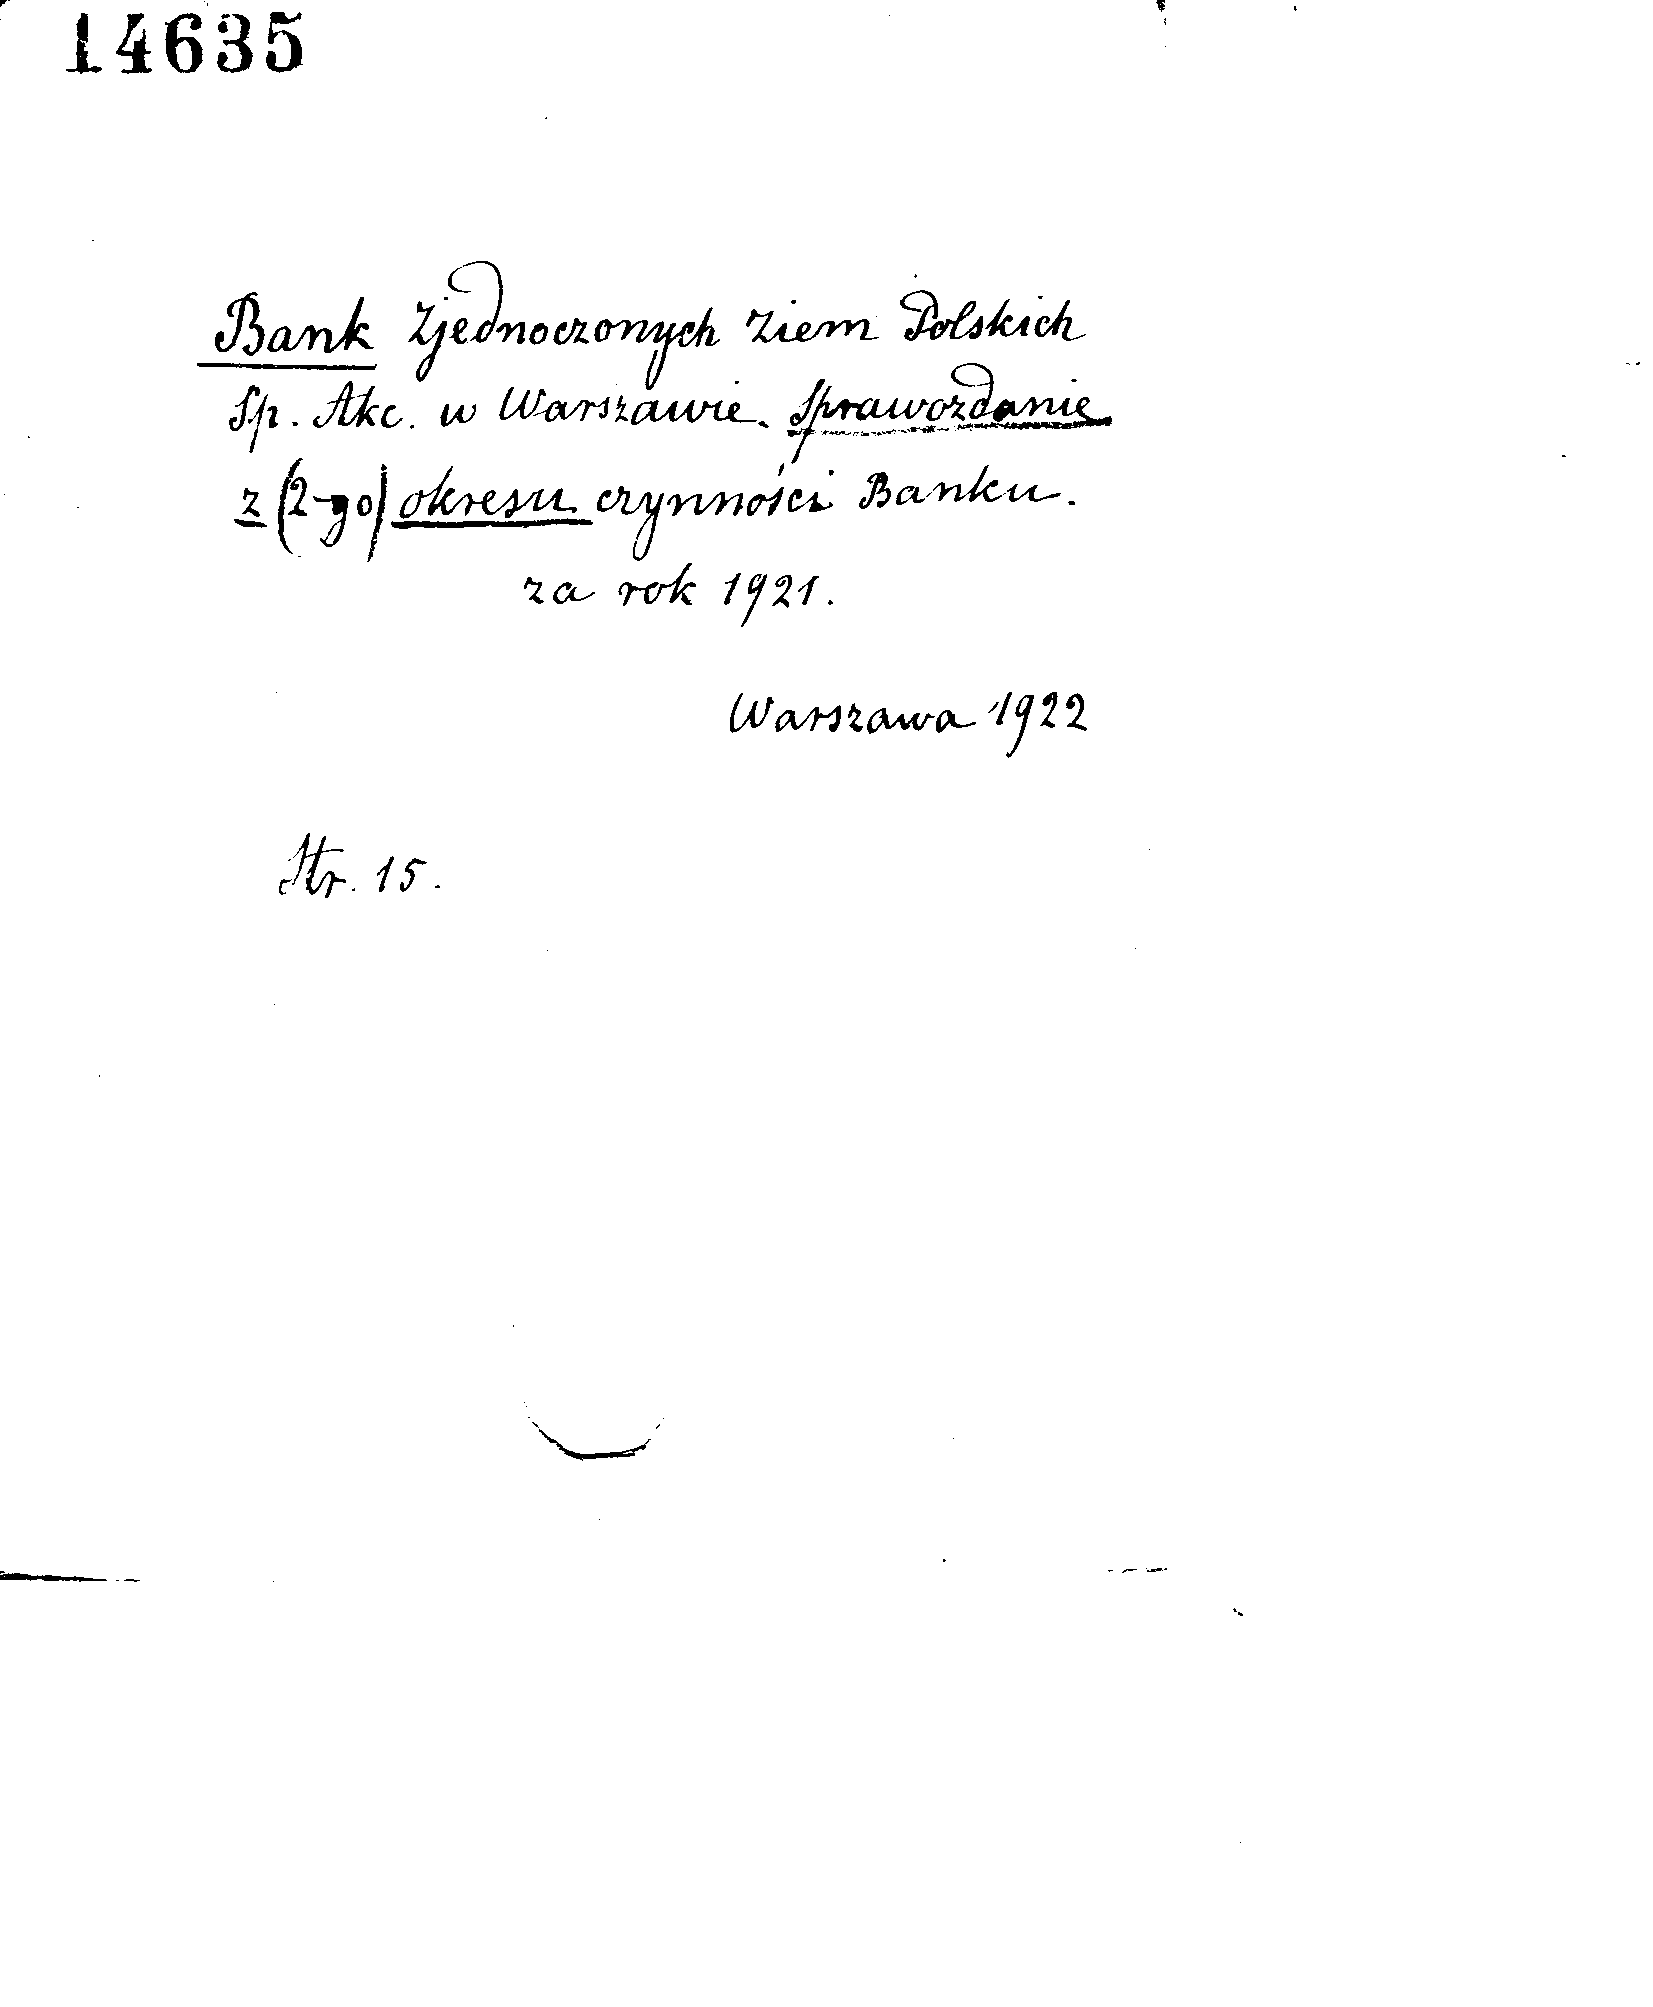 14635
Bank Zjednoczonych Ziem Polskich
Sp. Akc. w Warszawie. Sprawozdanie
z (2-go) okresu czynności Banku.
za rok 1921.
Warszawa 1922
Str. 15.